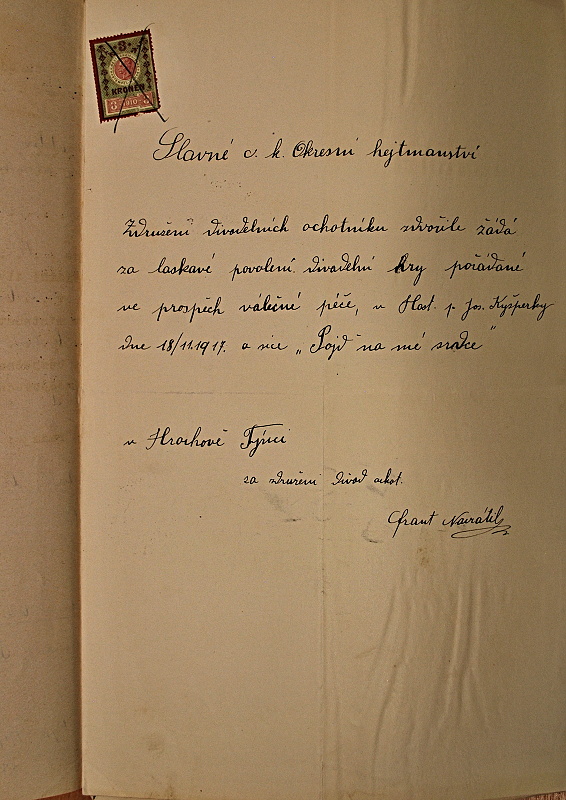 3
KRONEN
3 1910 3
Slavné c. k. Okresní hejtmanství
Združení divadelních ochotníku zdvořile žádá
za laskavé povolení divadelní hry pořádané
ve prospěch váleční péče, v Host. p. Jos. Kyšperky
dne 18/11.1917. a sice „Pojď na mé srdce"
v Hrochově Týnci
za združení divad ochot.
Frant Navrátil